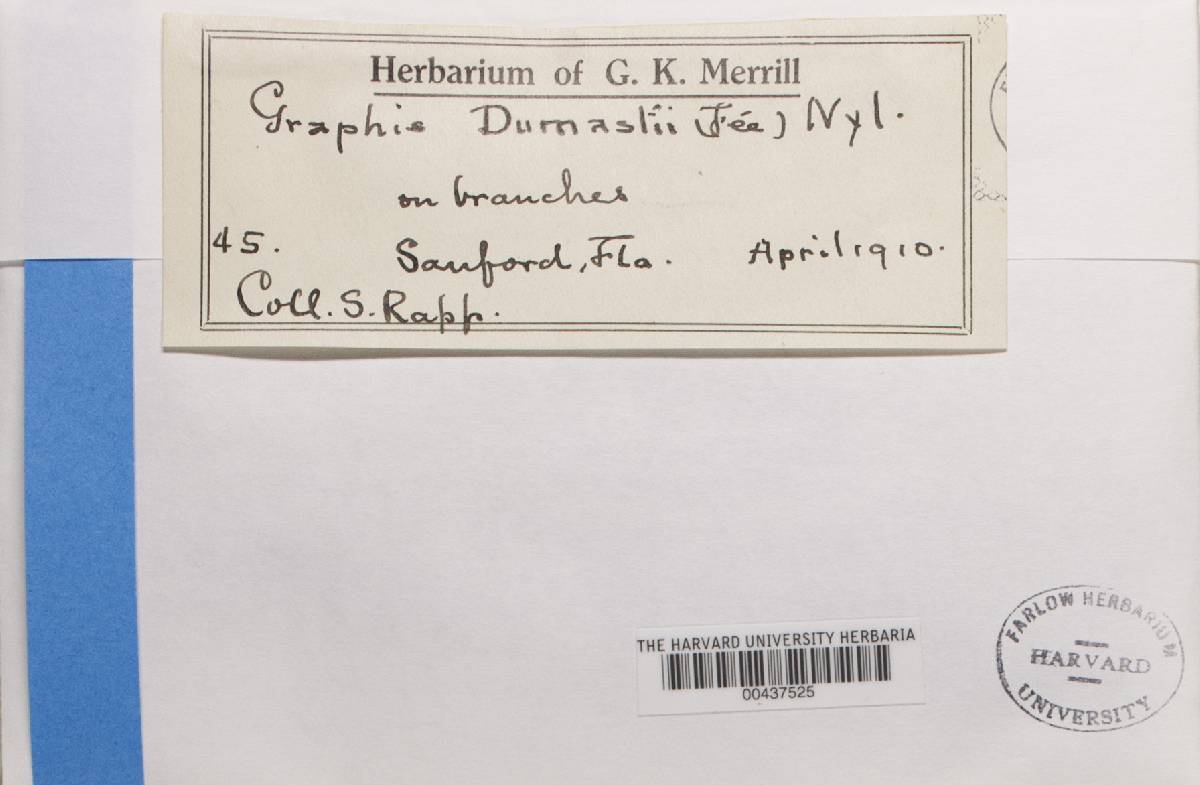 Herbarium of G. K. Merrill
Graphis Dumastii (Fée) Nyl.
on branches
45. Sanford, Fla. April 1910.
Coll. S. Rapp.
THE HARVARD UNIVERSITY HERBARIA
00437525
FARLOW HERBARIUM
HARVARD
UNIVERSITY